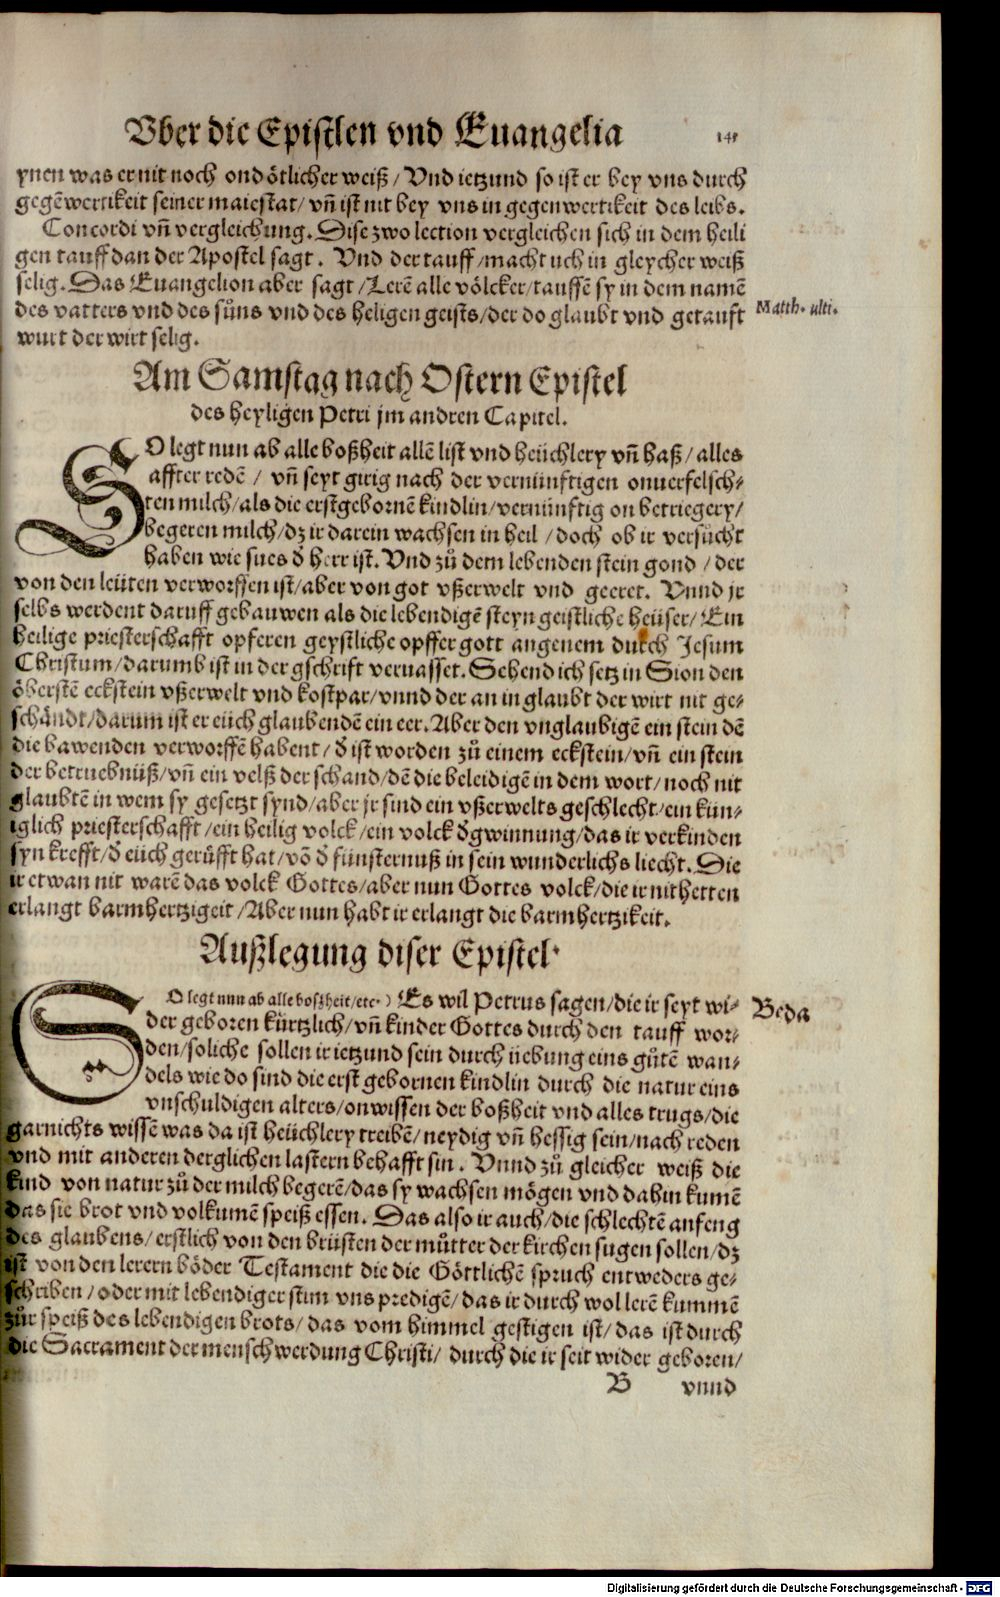 Vber die Epistlen vnd Euangelia 141
ynen was er nit noch ondötlicher weiß / Vnd ietzund so ist er bey vns durch
gegēwertikeit seiner maiestat / vñ ist nit bey vns in gegenwertikeit des leibs.
Concordi vñ vergleichung. Dise zwo lection vergleichen sich in dem heili
gen tauff dan der Apostel sagt. Vnd der tauff / macht uch in gleycher weiß
selig. Das Euangelion aber sagt / Lerē alle völcker / tauffē sy in dem namē
des vatters vnd des sůns vnd des heligen geists / der do glaubt vnd getauft
wurt der wirt selig.
Matth. ulti.
Am Samstag nach Ostern Epistel
des heyligen Petri jm andren Capitel.
SO legt nun ab alle boßheit allē list vnd heüchlery vñ haß / alles
affter redē / vñ seyt girig nach der vernünftigen onuerfelsch⸗
ten milch / als die erstgebornē kindlin / vernünftig on betriegery /
begeren milch / dz ir darein wachsen in heil / doch ob ir versůcht
haben wie sues d̄ herr ist. Vnd zů dem lebenden stein gond / der
von den leüten verworffen ist / aber von got vßerwelt vnd geeret. Vnnd jr
selbs werdent daruff gebauwen als die lebendigē steyn geistliche heüser / Ein
heilige priesterschafft opferen geystliche opffer gott angenem durch Jesum
Christum / darumb ist in der gschrift veruasset. Sehend ich setz in Sion den
öberstē eckstein vßerwelt vnd kostpar / vnnd der an in glaubt der wirt nit ge⸗
schändt / darum ist er eüch glaubendē ein eer. Aber den vnglaubigē ein stein dē
die bawenden verworffē habent / d̄ ist worden zů einem eckstein / vñ ein stein
der betruebnüß / vñ ein velß der schand / dē die beleidigē in dem wort / noch nit
glaubtē in wem sy gesetzt synd / aber jr sind ein vßerwelts geschlecht / ein kün⸗
iglich priesterschafft / ein heilig volck / ein volck d̄ gwinnung / das ir verkinden
syn krefft / d̄ eüch gerüfft hat / vō d̄ fünsternuß in sein wunderlichs liecht. Die
ir etwan nit warē das volck Gottes / aber nun Gottes volck / die ir nit hetten
erlangt barmhertzigeit / Aber nun habt ir erlangt die barmhertzikeit.
Außlegung diser Epistel.
SO legt nun ab alle boßheit / etc.) Es wil Petrus sagen / die ir seyt wi⸗
Beda
der geboren kürtzlich / vñ kinder Gottes durch den tauff wor⸗
den / soliche sollen ir ietzund sein durch üebung eins gůtē wan⸗
dels wie do sind die erst gebornen kindlin durch die natur eins
vnschuldigen alters / onwissen der boßheit vnd alles trugs / die
garnichts wissē was da ist heüchlery treibē / neydig vñ hessig sein / nach reden
vnd mit anderen derglichen lastern behafft sin. Vnnd zů gleicher weiß die
kind von natur zů der milch begerē / das sy wachsen mögen vnd dahin kumē
das sie brot vnd volkumē speiß essen. Das also ir auch / die schlechtē anfeng
des glaubens / erstlich von den brüsten der můtter der kirchen sugen sollen / dz
ist von den lerern böder Testament die die Göttlichē spruch entweders ge⸗
schriben / oder mit lebendiger stim vns predigē / das ir durch wol lerē kummē
zůr speiß des lebendigen brots / das vom himmel gestigen ist / das ist durch
die Sacrament der menschwerdung Christi / durch die ir seit wider geboren /
B vnnd
Digitalisierung gefördert durch die Deutsche Forschungsgemeinschaft - DFG